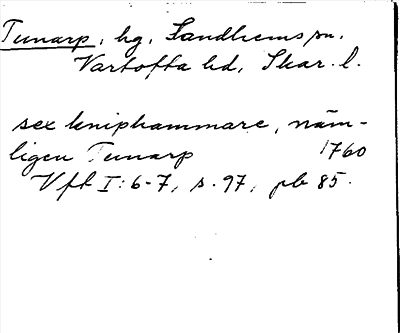 Tunarp, hg, Sandhems sn,
Vartofta hd, Skar. l.
sex kniphammare, näm-
ligen Tunarp 1760
Vft I: 6-7, s. 97, pb 85.